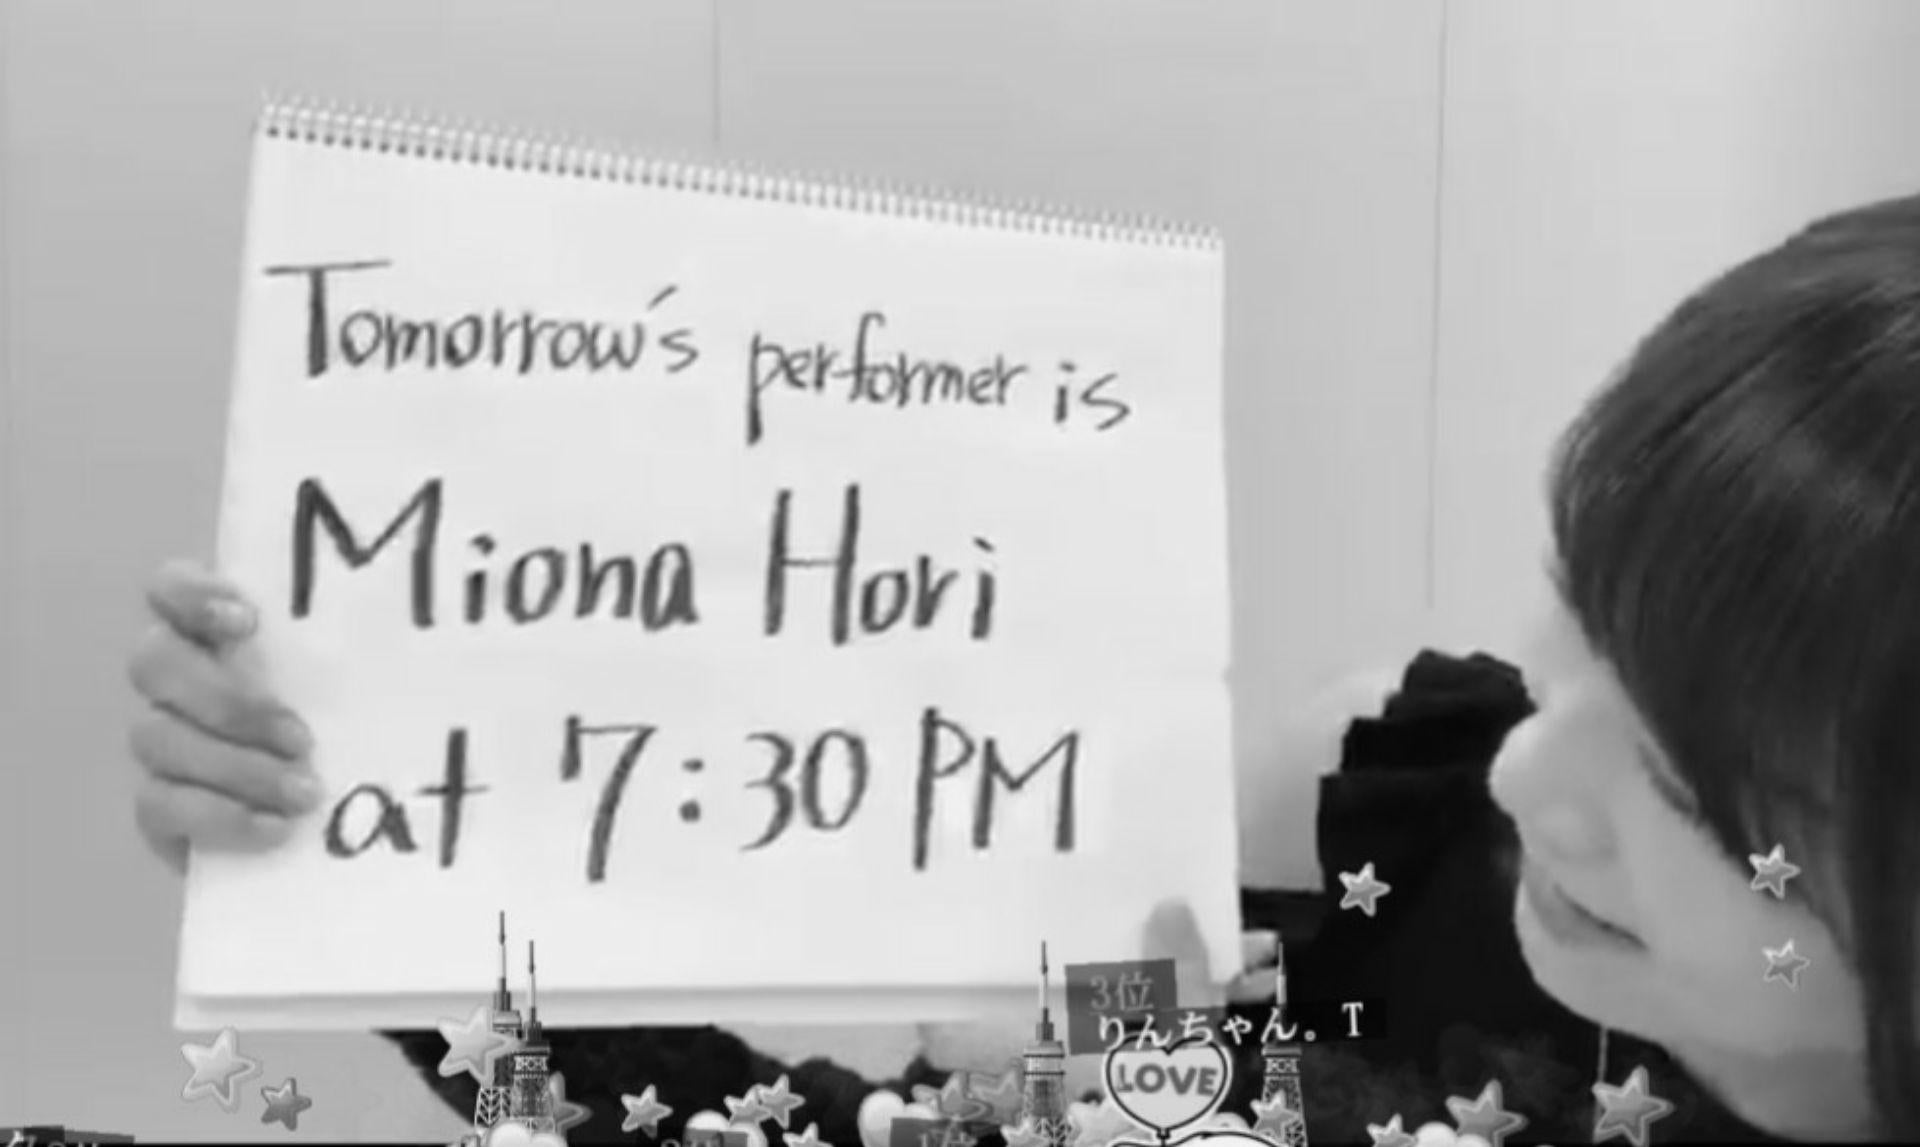 Tomorrow's performer is
Miona Hori
at 7:30 PM
3位
りんちゃん。T
LOVE